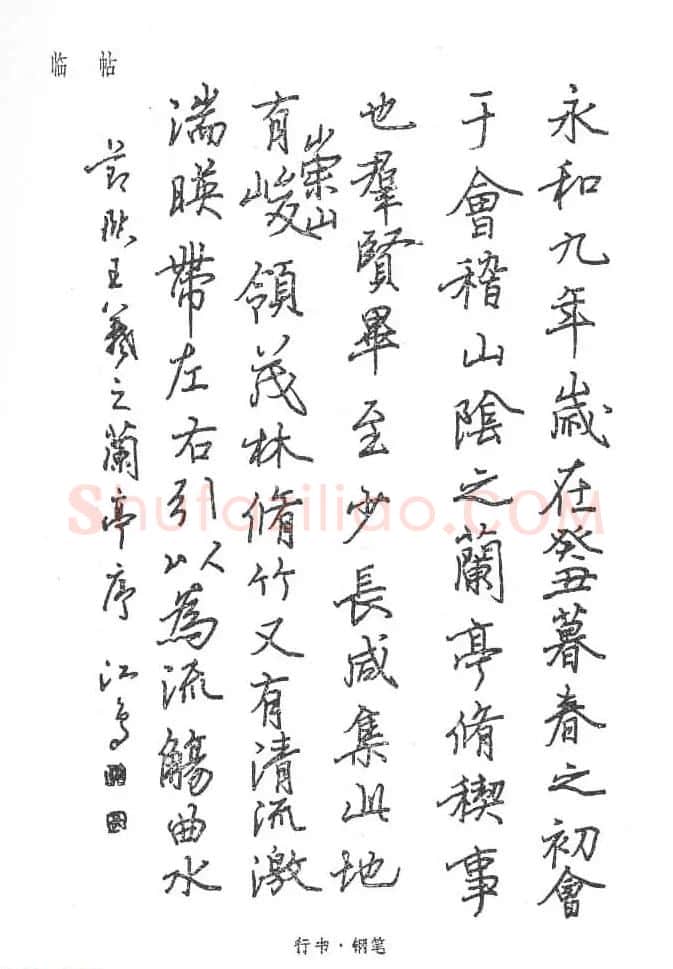 临帖
永和九年歲在癸丑暮春之初會
于會稽山陰之蘭亭脩稧事
也羣賢畢至少長咸集此地
有崇山峻領茂林脩竹又有清流激
湍暎帶左右引以為流觴曲水
節臨王羲之蘭亭序 江
Shufaziliao.com
行书·钢笔